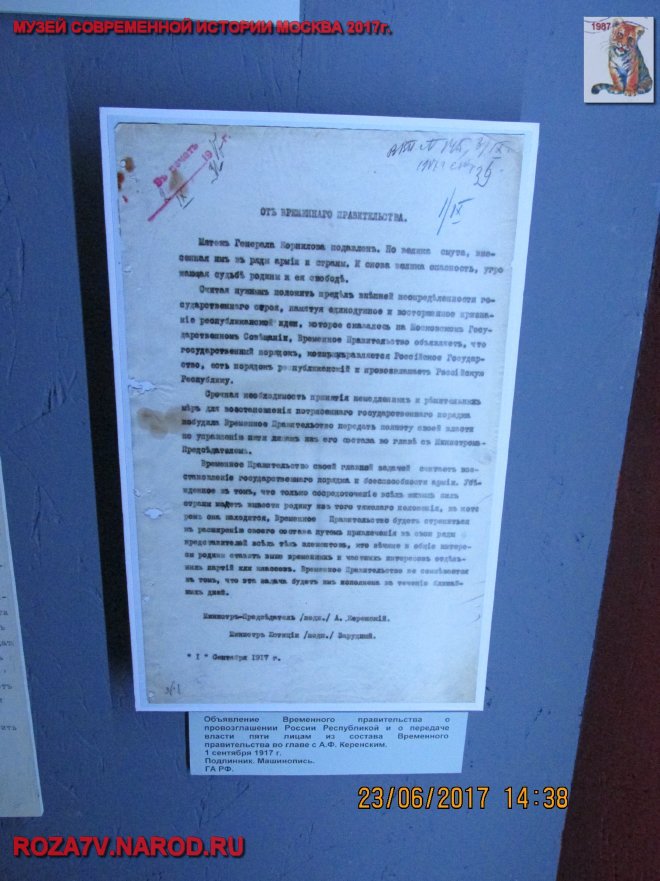 МУЗЕЙ СОВРЕМЕННОЙ ИСТОРИИ МОСКВА 2017г.
1987
Въ печать
ОТЪ ВРЕМЕННАГО ПРАВИТЕЛЬСТВА.
Мятеж Генерала Корнилова подавлен. Но велика смута, вне-
сенная им в ряди арміи и страны. И снова велика опасность, угро
жающая судьбѣ родины и ея свободѣ.
Считая нужным положить предѣл внѣшней неопредѣленности го-
сударственнаго строя, памятуя единодушное и восторженное призна-
ніе республиканской идеи, которое сказалось на Московском Госу-
дарственном Совѣщаніи, Временное Правительство объявляет, что
государственный порядок, которым управляется Россійское Государ-
ство, есть порядок республиканскій и провозглашает Россійскую
Республику.
Срочная необходимость принятія немедленных и рѣшительных
мѣр для возстановленія потрясеннаго государственнаго порядка
побудила Временное Правительство передать полноту своей власти
по управленію пяти лицам из его состава во главѣ с Министром-
Предсѣдателем.
Временное Правительство своей главной задачей считает воз-
становленіе государственнаго порядка и боеспособности арміи. Убѣ-
жденное в том, что только сосредоточеніе всѣх живых сил
страны может вывести родину из того тяжелаго положенія, в кото
ром она находится, Временное Правительство будет стремиться
к расширенію своего состава путем привлеченія в свои ряды
представителей всѣх тѣх элементов, кто вѣчные и общіе интере-
сы родины ставит выше временных и частных интересов отдѣль-
ных партій или классов. Временное Правительство не сомнѣвается
в том, что эта задача будет им исполнена в теченіе ближай-
ших дней.
Министр-Предсѣдатель /подп./ А. Керенскій.
Министр Юстиціи /подп./ Зарудный.
" I " Сентября 1917 г.
Объявление Временного правительства о
провозглашении России Республикой и о передаче
власти пяти лицам из состава Временного
правительства во главе с А.Ф. Керенским.
1 сентября 1917 г.
Подлинник. Машинопись.
ГА РФ.
23/06/2017 14:38
ROZA7V.NAROD.RU